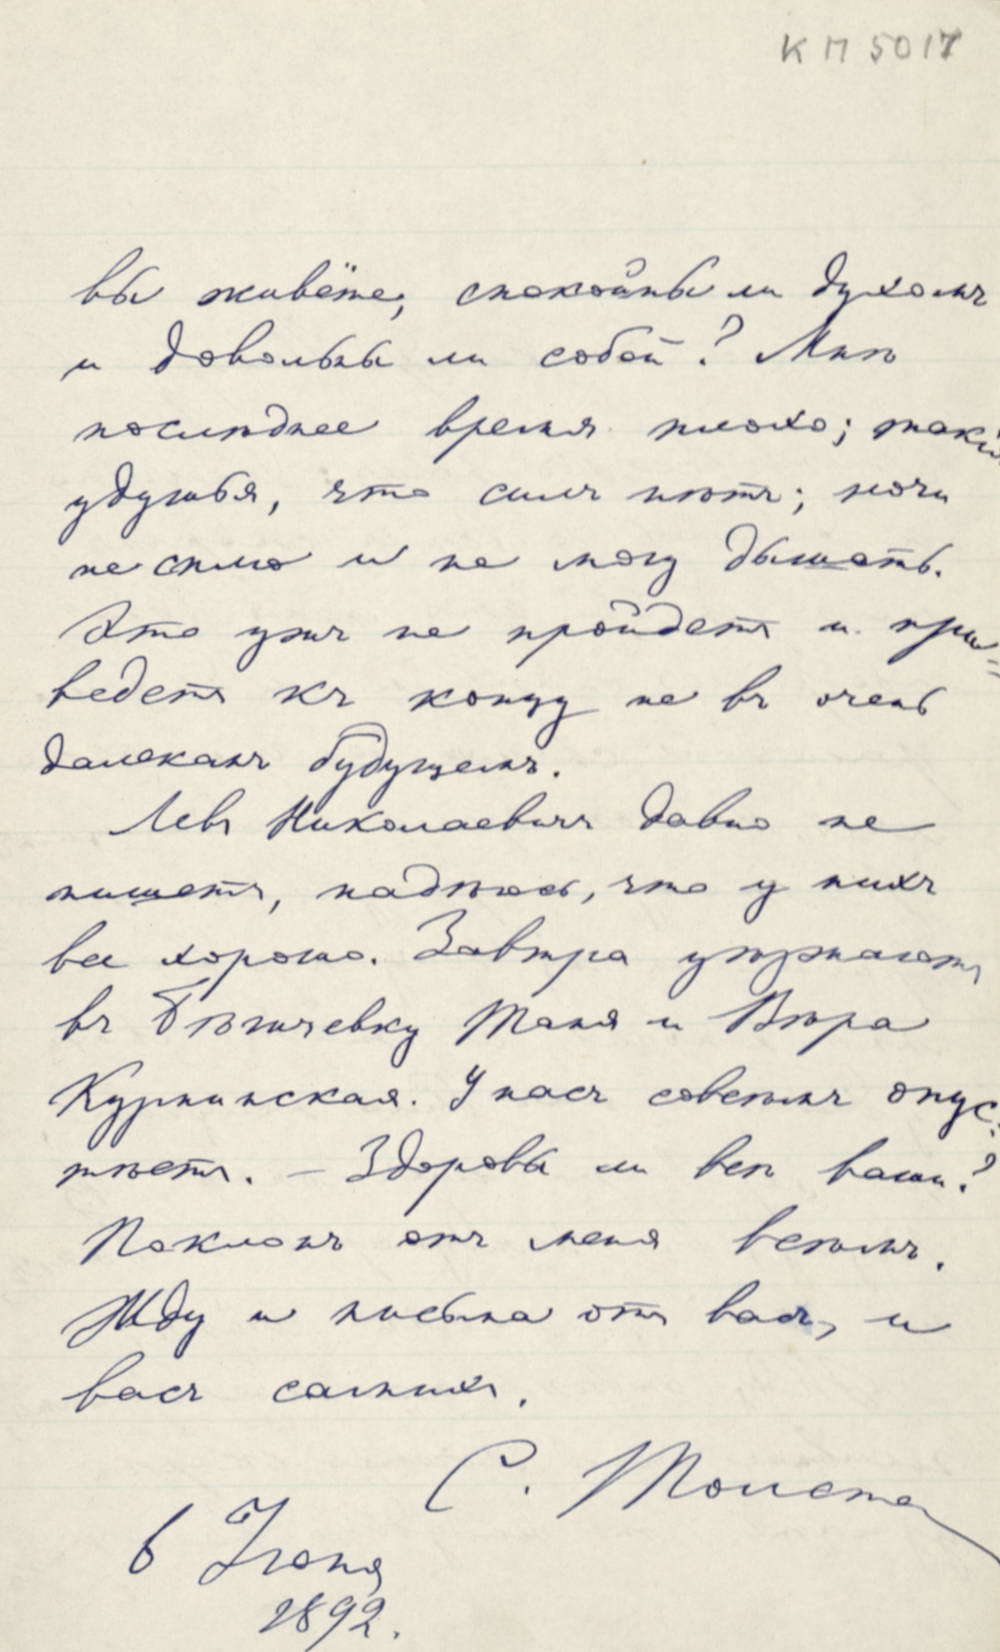 КП 5017
вы живёте, спокойны ли духомъ
и довольны ли собой? Мнѣ
послѣднее время плохо; такія
удушья, что силъ нѣтъ; ночи
не сплю и не могу дышать.
Это ужъ не пройдетъ и при=
ведетъ къ концу не въ очень
далекомъ будущемъ.
Левъ Николаевичъ давно не
пишетъ, надѣюсь, что у нихъ
все хорошо. Завтра уѣзжаютъ
въ Бѣгичевку Таня и Вѣра
Кузминская. У насъ совсѣмъ опус-
тѣетъ. — Здоровы ли всѣ ваши?
Поклонъ отъ меня всѣмъ.
Жду и письма отъ васъ, и
васъ самихъ.
С. Толстая
6 Iюня
1892.